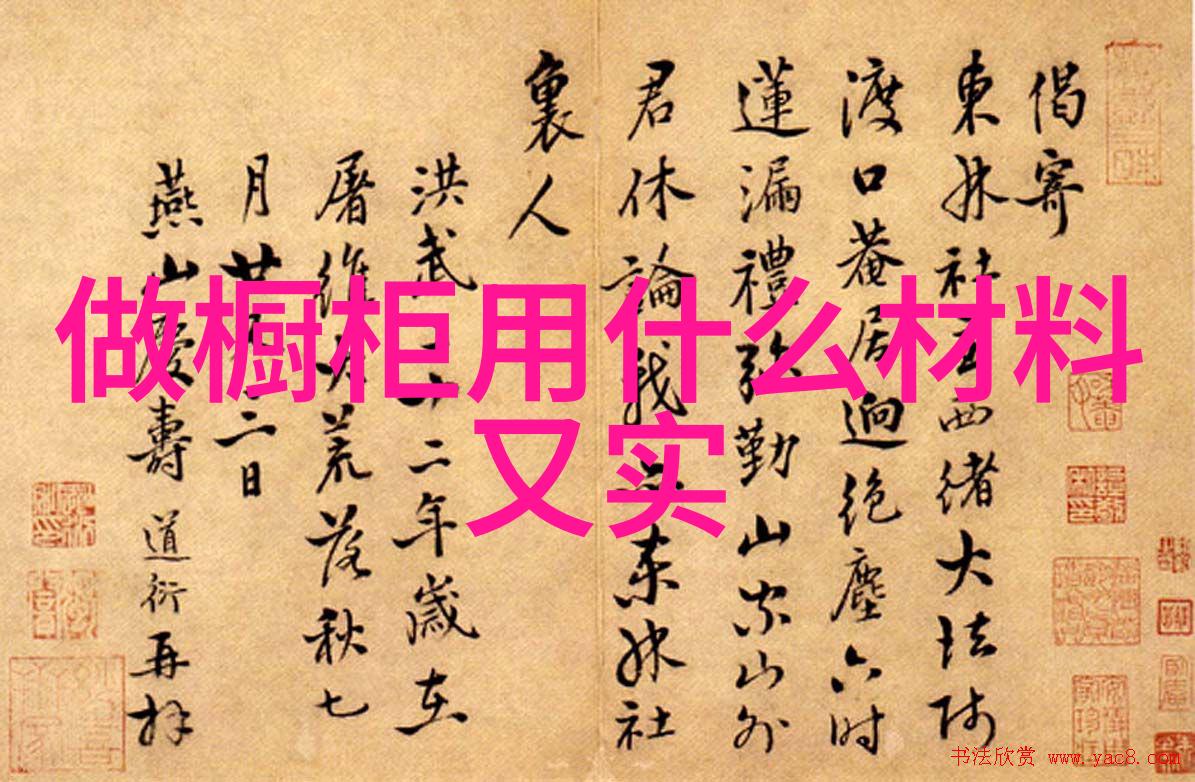 做橱柜用什么材料
又实
偈寄
東林社西緒大法師
渡口菴居迥絶塵六时
蓮漏禮弥勤山家山外
君休論我是東林社
裏人
洪武二十二年歲在
屠維大荒落秋七
月廿二日
燕山慶壽道衍再拜
书法欣赏 www.yac8.com